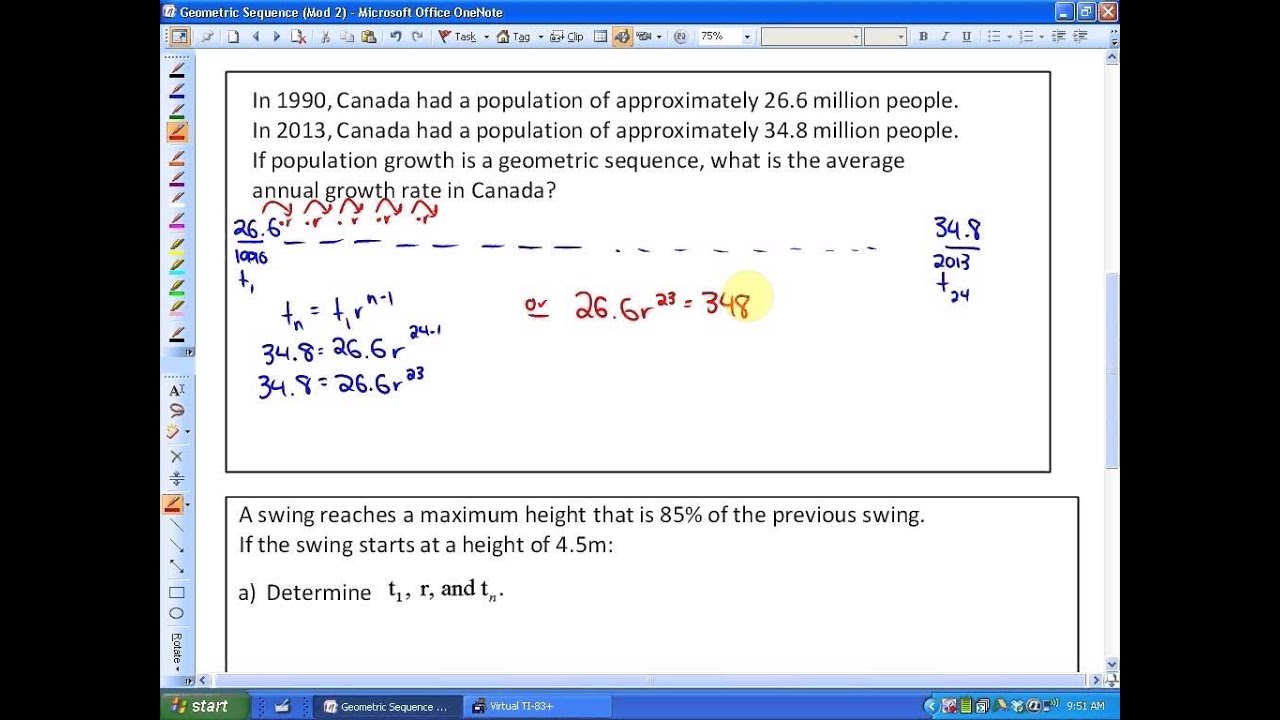 Geometric Sequence (Mod 2) - Microsoft Office OneNote
Task Tag Clip 75% B I U
In 1990, Canada had a population of approximately 26.6 million people.
In 2013, Canada had a population of approximately 34.8 million people.
If population growth is a geometric sequence, what is the average
annual growth rate in Canada?
·r ·r ·r ·r ·r
26.6 34.8
1990 2013
t₁ t₂₄
tₙ = t₁rⁿ⁻¹ or 26.6r²³ = 348
34.8 = 26.6r²⁴⁻¹
34.8 = 26.6r²³
A swing reaches a maximum height that is 85% of the previous swing.
If the swing starts at a height of 4.5m:
a) Determine t₁, r, and tₙ.
Rotate
start Geometric Sequence ... Virtual TI-83+ 9:51 AM